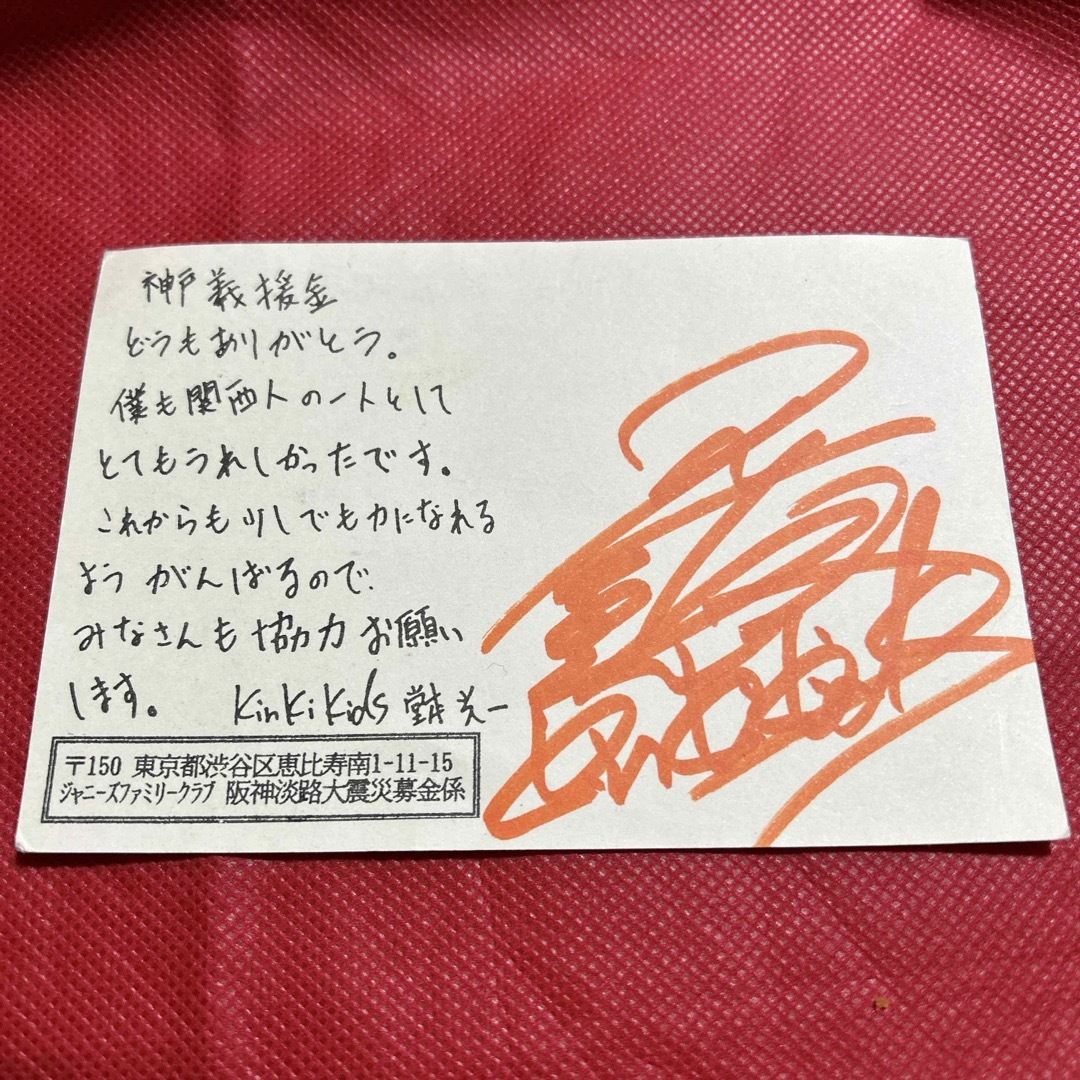 神戸義援金
どうもありがとう。
僕も関西人の一人として
とてもうれしかったです。
これからも少しでも力になれる
ようがんばるので、
みなさんも協力お願い
します。 KinKi Kids 堂本光一
〒150 東京都渋谷区恵比寿南1-11-15
ジャニーズファミリークラブ 阪神淡路大震災募金係